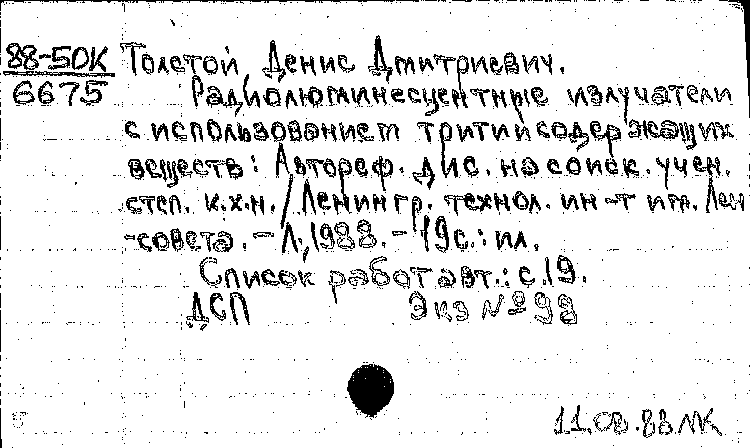 88-50К Толстой, Денис Дмитриевич.
6675 Радиолюминесцентные излучатели
с использованием тритийсодержащих
веществ: Автореф. дис. на соиск. учен.
степ. к.х.н. / Ленингр. технол. ин-т им. Лен
-совета. – Л., 1988. – 19с.: ил.
Список работ авт.: с.19.
ДСП Экз №98
11.08.88 МК